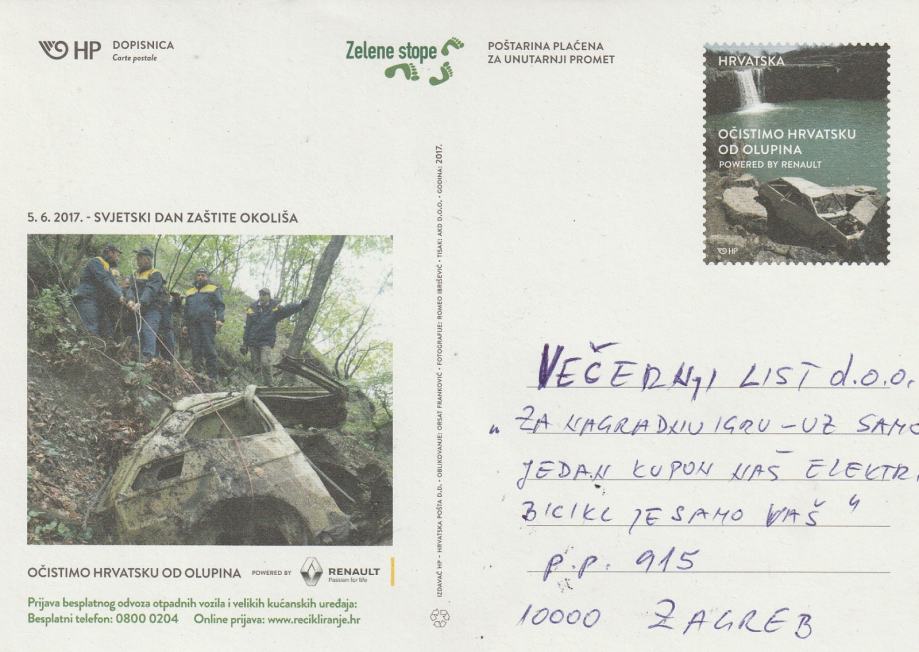 HP DOPISNICA
Carte postale
Zelene stope
POŠTARINA PLAĆENA
ZA UNUTARNJI PROMET
HRVATSKA
OČISTIMO HRVATSKU
OD OLUPINA
POWERED BY RENAULT
HP
5. 6. 2017. - SVJETSKI DAN ZAŠTITE OKOLIŠA
OČISTIMO HRVATSKU OD OLUPINA POWERED BY RENAULT
Passion for life
Prijava besplatnog odvoza otpadnih vozila i velikih kućanskih uređaja:
Besplatni telefon: 0800 0204 Online prijava: www.recikliranje.hr
IZDAVAČ HP - HRVATSKA POŠTA D.D. • OBLIKOVANJE: ORSAT FRANKOVIĆ • FOTOGRAFIJE: ROMEO IBRIŠEVIĆ • TISAK: AKD D.O.O. • GODINA: 2017.
VEČERNJI LIST d.o.o.
"ZA NAGRADNU IGRU - UZ SAMO
JEDAN KUPON NAŠ ELEKTR.
BICIKL JE SAMO VAŠ"
p.p. 915
10000 ZAGREB